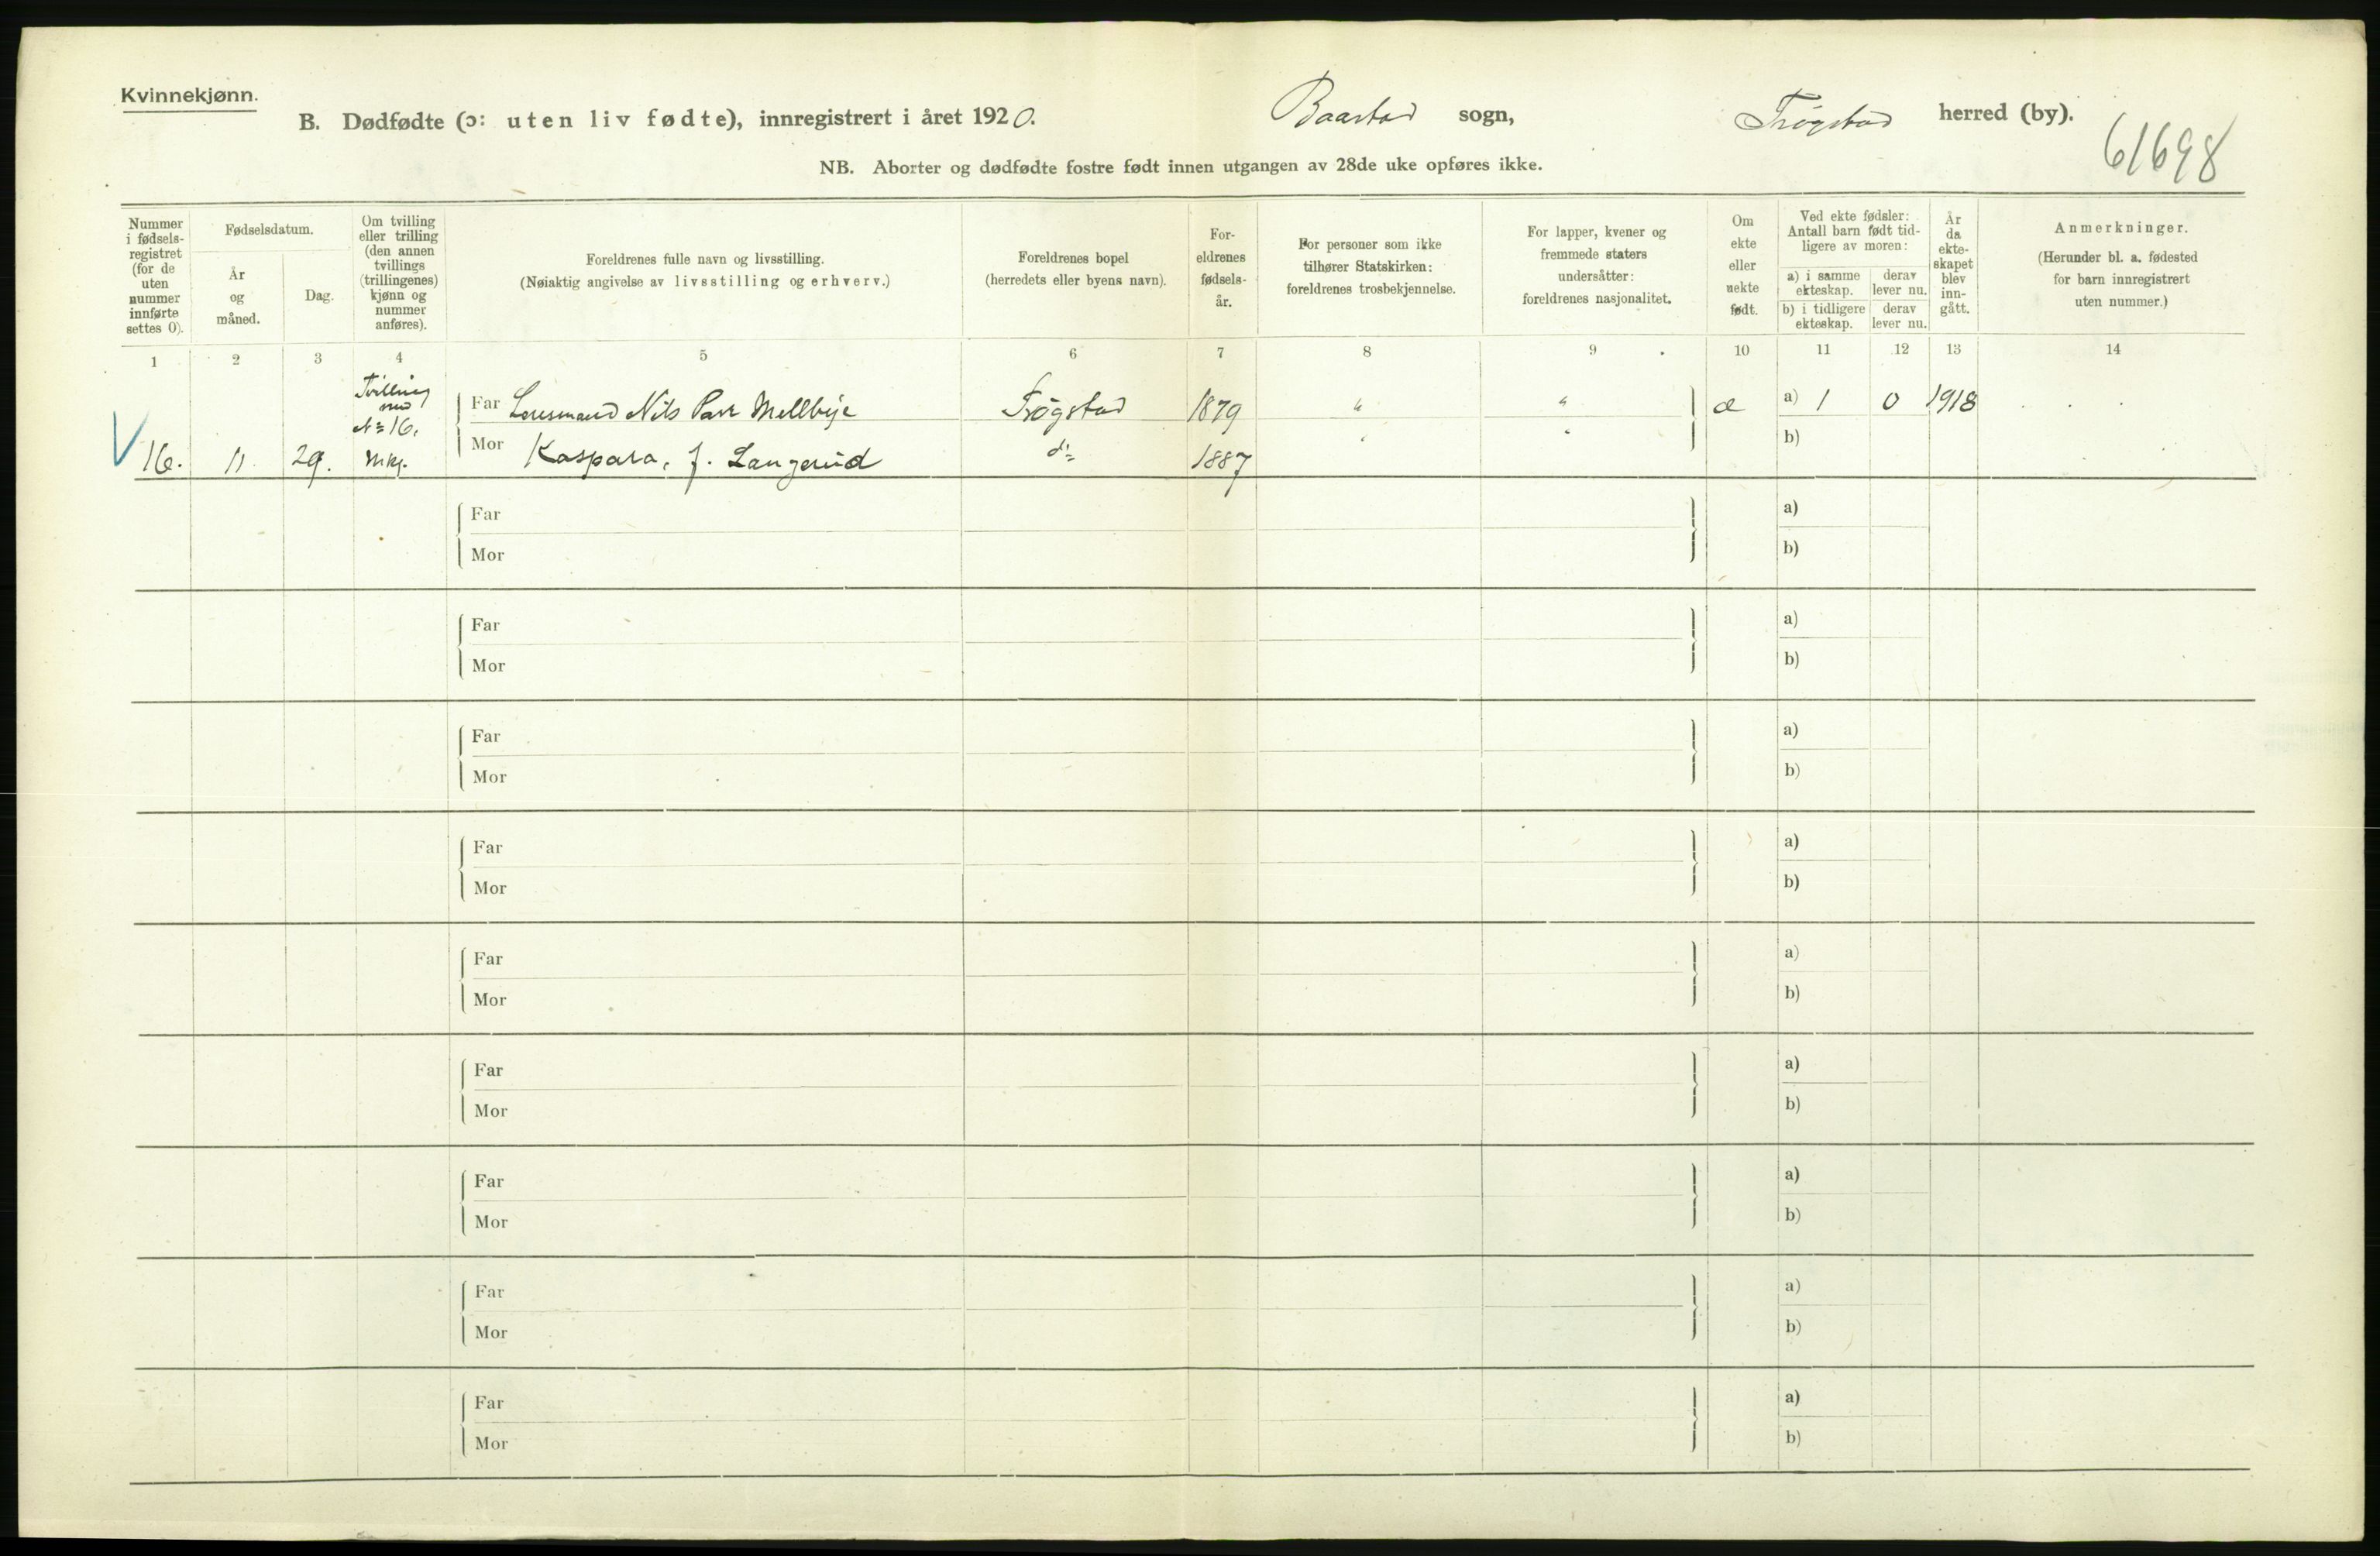 Kvinnekjønn.
B. Dødfødte (ɔ: uten liv fødte), innregistrert i året 1920. Baastad sogn, Trøgstad herred (by).
61698
NB. Aborter og dødfødte fostre født innen utgangen av 28de uke opføres ikke.
Nummer i fødsels-registret (for de uten nummer innførte settes 0).
Fødselsdatum.
År og måned.
Dag.
Om tvilling eller trilling (den annen tvillings (trillingenes) kjønn og nummer anføres).
Foreldrenes fulle navn og livsstilling.
(Nøiaktig angivelse av livsstilling og erhverv.)
Foreldrenes bopel
(herredets eller byens navn).
For-eldrenes fødsels-år.
For personer som ikke tilhører Statskirken: foreldrenes trosbekjennelse.
For lapper, kvener og fremmede staters undersåtter: foreldrenes nasjonalitet.
Om ekte eller uekte født.
Ved ekte fødsler: Antall barn født tid-ligere av moren:
a) i samme ekteskap.
derav lever nu.
b) i tidligere ekteskap.
derav lever nu.
År da ekte-skapet blev inn-gått.
Anmerkninger.
(Herunder bl. a. fødested for barn innregistrert uten nummer.)
1 2 3 4 5 6 7 8 9 10 11 12 13 14
Tvilling
med
№ 16.
Far Lensmand Nils Mellbye Trøgstad 1879 " " æ a) 1 0 1918
16. 11. 29. mkj. Mor Kaspara, f. Langerud do 1887 " " b)
Far a)
Mor b)
Far a)
Mor b)
Far a)
Mor b)
Far a)
Mor b)
Far a)
Mor b)
Far a)
Mor b)
Far a)
Mor b)
Far a)
Mor b)
Far a)
Mor b)